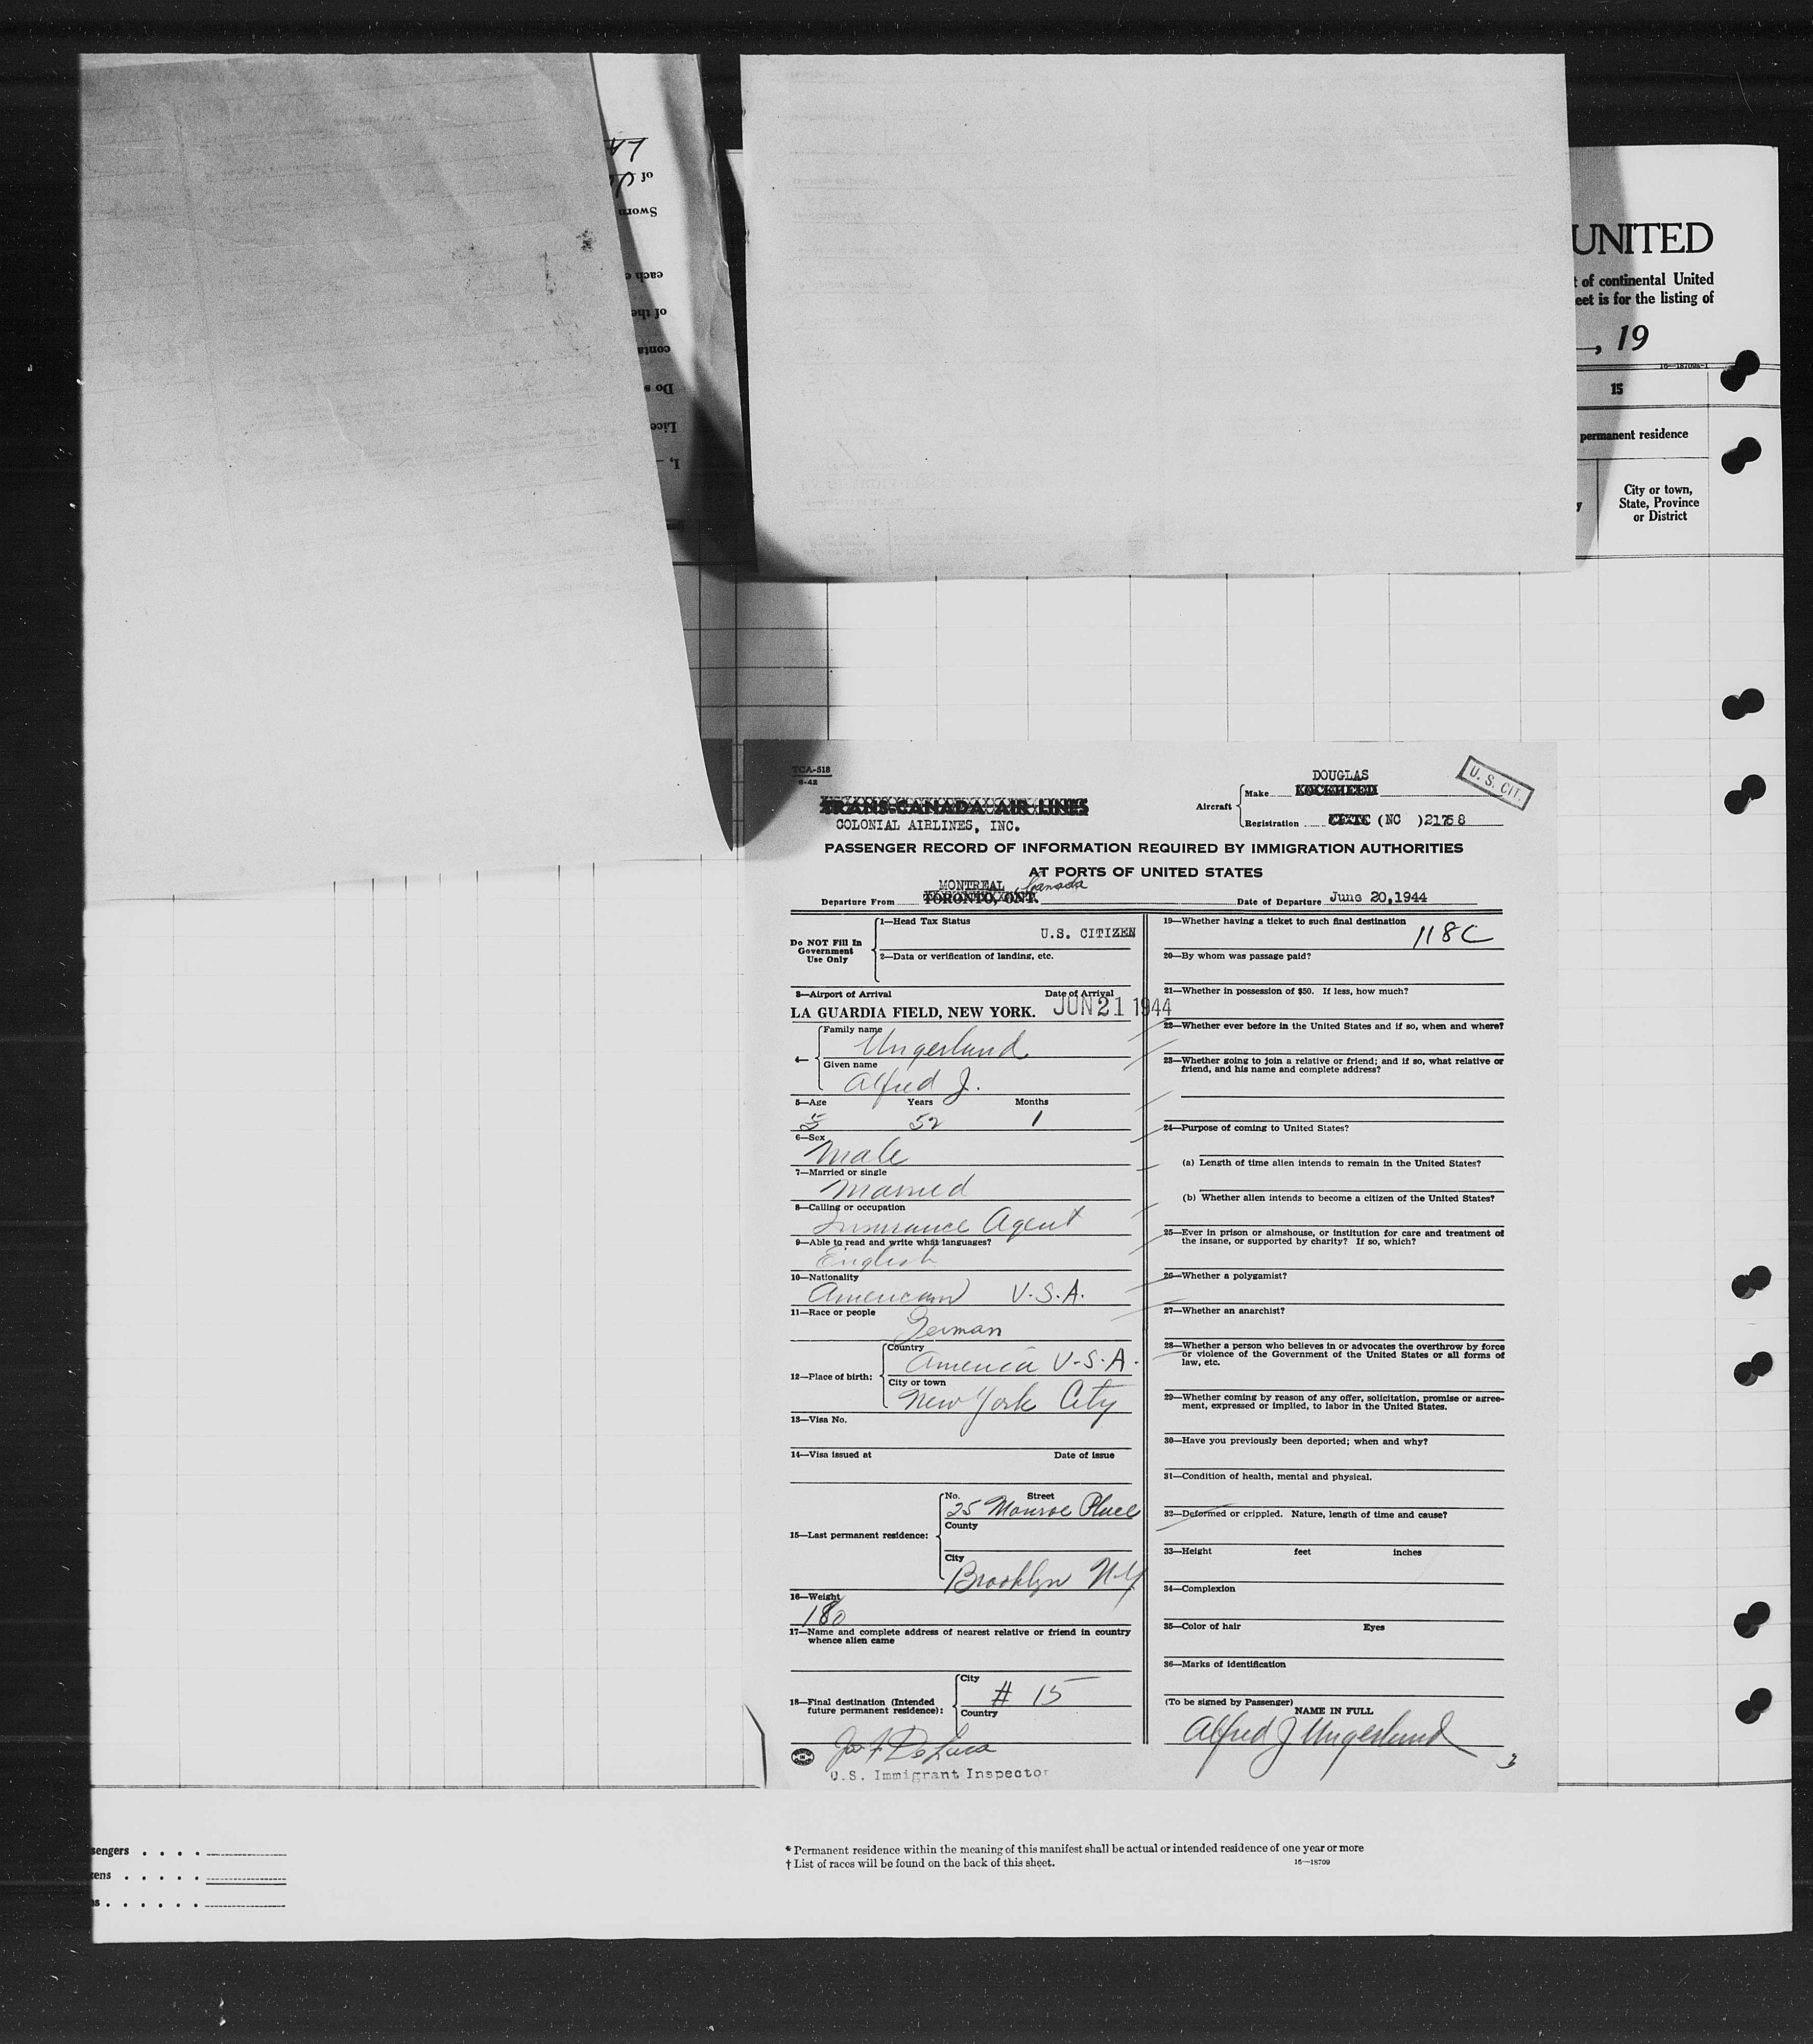 LA
of
Sworn
each e
of the
conta
Do s
Lice
I, —
UNITED
t of continental United
eet is for the listing of
, 19
16—18709a-1
15
permanent residence
y
City or town,
State, Province
or District
TCA-518
6-42
TRANS-CANADA AIR LINES
COLONIAL AIRLINES, INC.
DOUGLAS
Aircraft
Make LOCKHEED
Registration (NC )21758
U. S. CIT.
PASSENGER RECORD OF INFORMATION REQUIRED BY IMMIGRATION AUTHORITIES
AT PORTS OF UNITED STATES
MONTREAL Canada
Departure From TORONTO, ONT.
Date of Departure June 20,1944
Do NOT Fill In
Government
Use Only
1—Head Tax Status
U.S. CITIZEN
2—Data or verification of landing, etc.
3—Airport of Arrival Date of Arrival
LA GUARDIA FIELD, NEW YORK. JUN 21 1944
4—
Family name
Ungerland
Given name
Alfred J.
5—Age Years Months
5 52 1
6—Sex
Male
7—Married or single
Married
8—Calling or occupation
Insurance Agent
9—Able to read and write what languages?
English
10—Nationality
American U.S.A.
11—Race or people
German
12—Place of birth:
Country
America U.S.A.
City or town
New York City
13—Visa No.
14—Visa issued at Date of issue
15—Last permanent residence:
No. Street
25 Monroe Place
County
City
Brooklyn N.Y
16—Weight
180
17—Name and complete address of nearest relative or friend in country
whence alien came
18—Final destination (Intended
future permanent residence):
City
# 15
Country
Jos F De Luca
U.S. Immigrant Inspector
19—Whether having a ticket to such final destination
118C
20—By whom was passage paid?
21—Whether in possession of $50. If less, how much?
22—Whether ever before in the United States and if so, when and where?
23—Whether going to join a relative or friend; and if so, what relative or
friend, and his name and complete address?
24—Purpose of coming to United States?
(a) Length of time alien intends to remain in the United States?
(b) Whether alien intends to become a citizen of the United States?
25—Ever in prison or almshouse, or institution for care and treatment of
the insane, or supported by charity? If so, which?
26—Whether a polygamist?
27—Whether an anarchist?
28—Whether a person who believes in or advocates the overthrow by force
or violence of the Government of the United States or all forms of
law, etc.
29—Whether coming by reason of any offer, solicitation, promise or agree-
ment, expressed or implied, to labor in the United States.
30—Have you previously been deported; when and why?
31—Condition of health, mental and physical.
32—Deformed or crippled. Nature, length of time and cause?
33—Height feet inches
34—Complexion
35—Color of hair Eyes
36—Marks of identification
(To be signed by Passenger)
NAME IN FULL
Alfred J Ungerland
3
sengers . . . .
zens . . . . .
s . . . . . .
* Permanent residence within the meaning of this manifest shall be actual or intended residence of one year or more
† List of races will be found on the back of this sheet.
16—18709